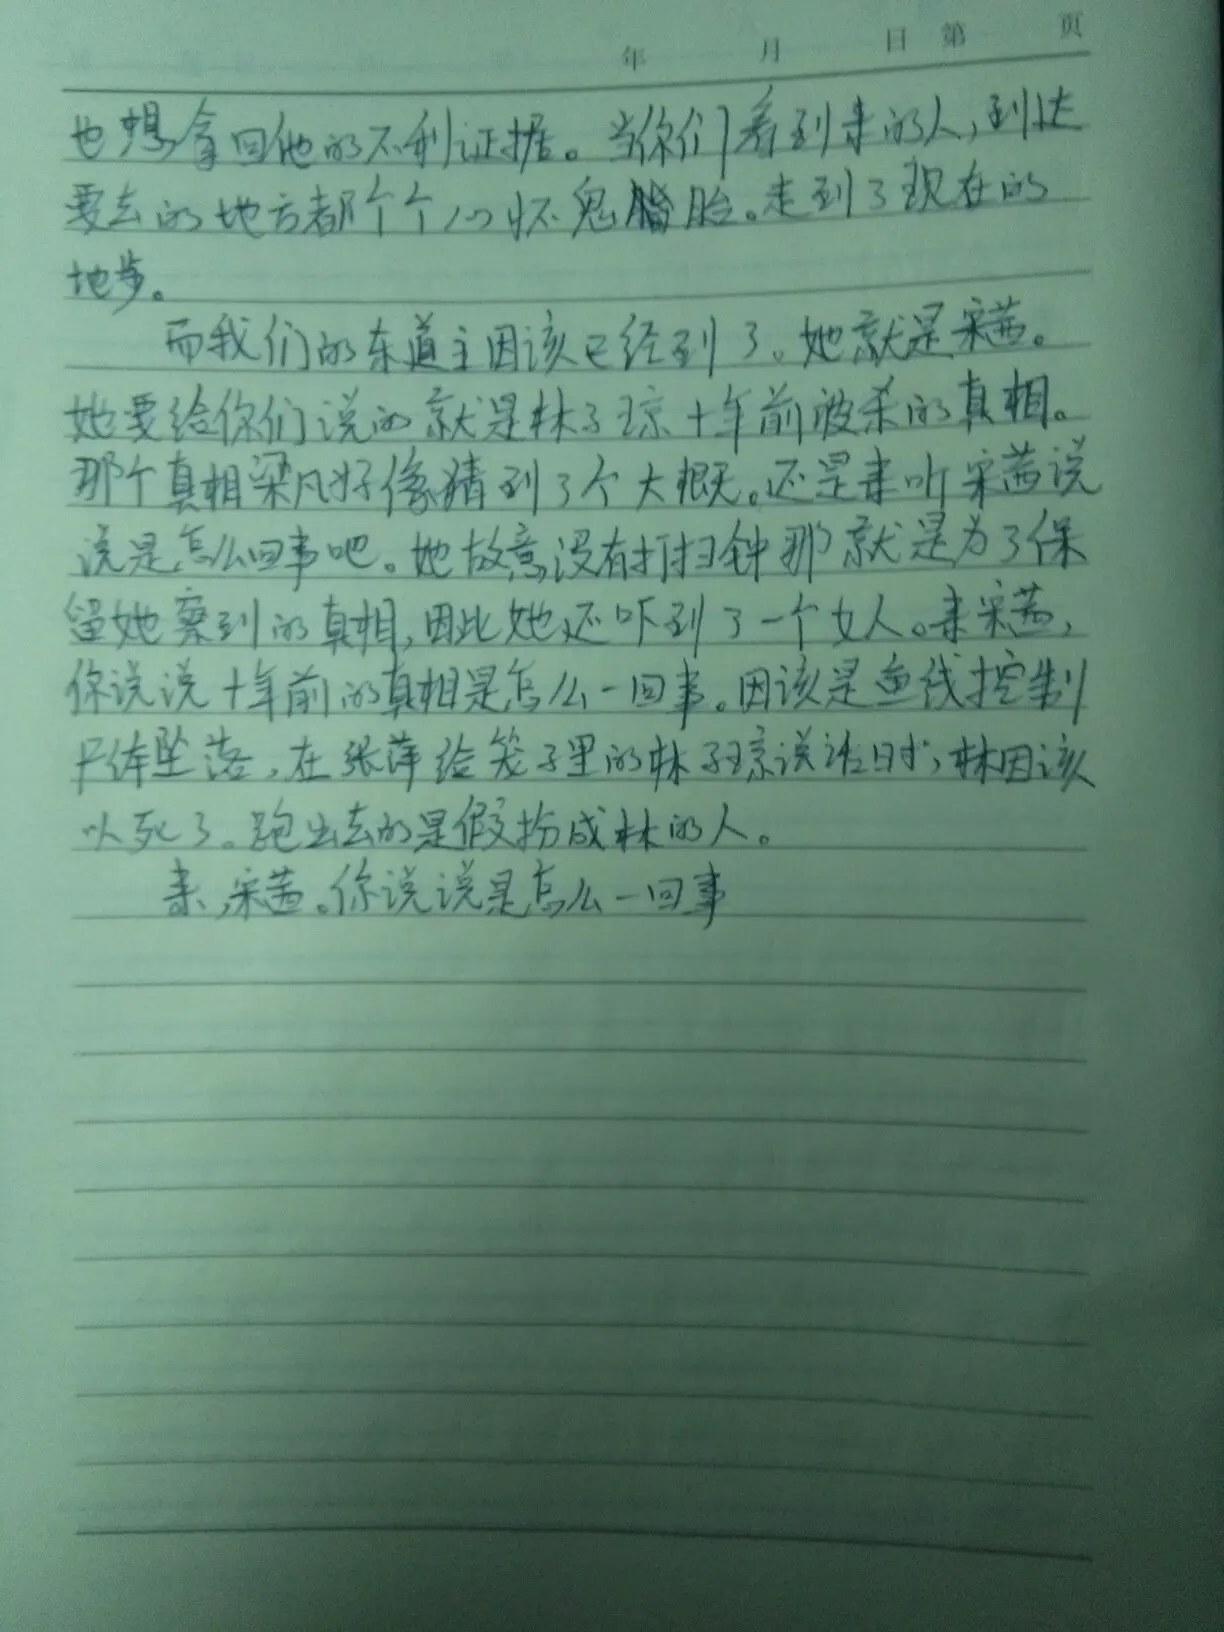 年 月 日 第 页
也想拿回他的不利证据。当你们看到来的人,到达
要去的地方都个个心怀鬼胎。走到了现在的
地步。
而我们的东道主因该已经到了。她就是宋茜。
她要给你们说的就是林子琼十年前被杀的真相。
那个真相梁凡好像猜到了个大概。还是来听宋茜说
说是怎么回事吧。她故意没有打扫钟那就是为了保
留她察到的真相,因此她还吓到了一个女人。来宋茜,
你说说十年前的真相是怎么一回事。因该是鱼线控制
尸体坠落,在张萍给笼子里的林子琼说话时,林因该
以死了。跑出去的是假扮成林的人。
来,宋茜。你说说是怎么一回事